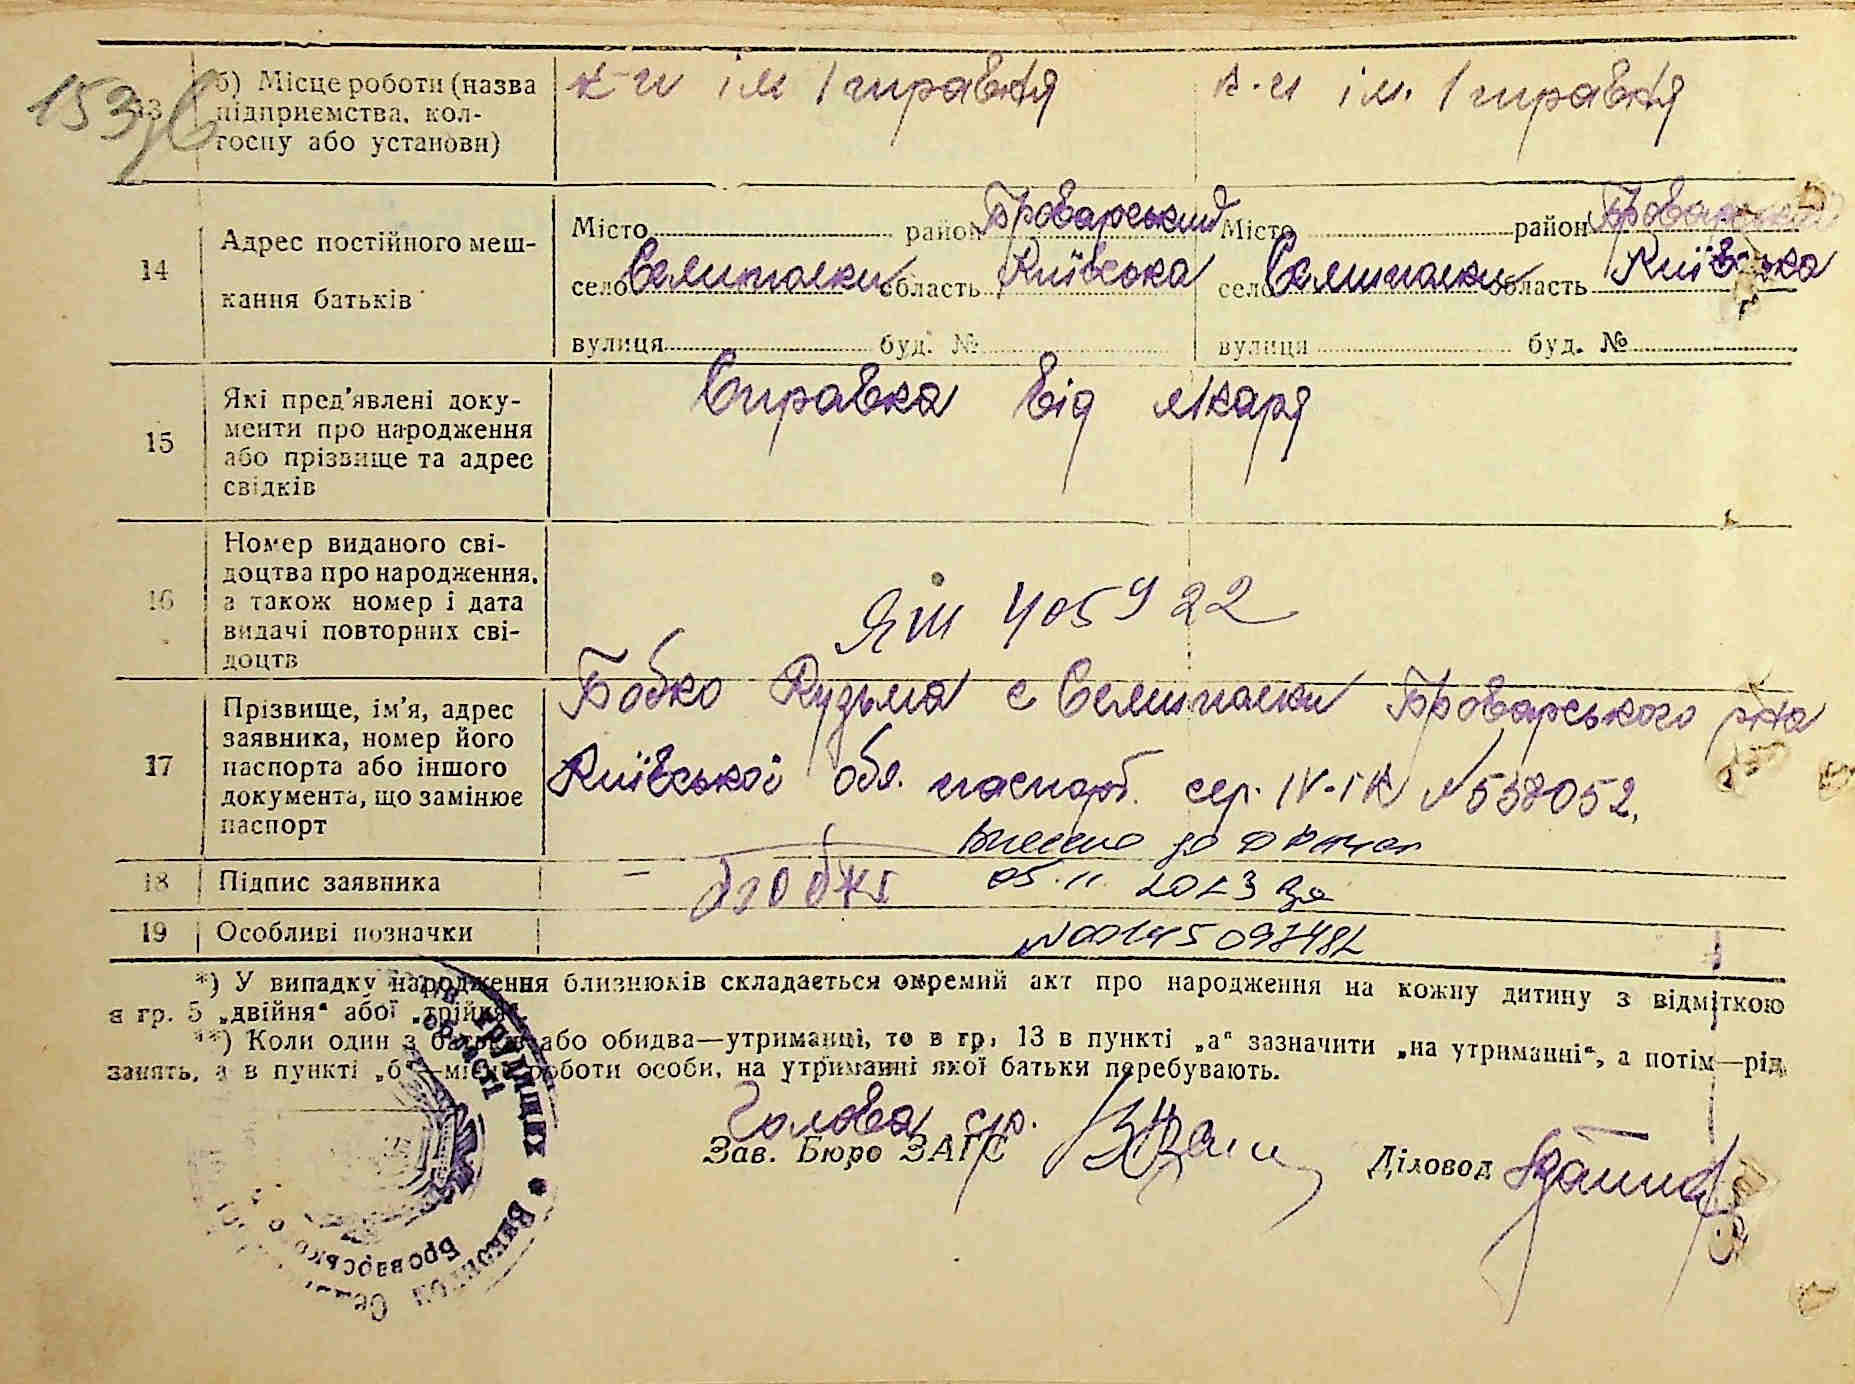 153 зв
13 б) Місце роботи (назва підприємства, колгоспу або установи)
к-п ім 1 травня к-п ім. 1 травня
14 Адрес постійного мешкання батьків
Місто район Броварський Місто район Броварський
село Семиполки область Київська село Семиполки область Київська
вулиця буд. № вулиця буд. №
15 Які пред'явлені документи про народження або прізвище та адрес свідків
Справка від лікаря
16 Номер виданого свідоцтва про народження, а також номер і дата видачі повторних свідоцтв
ЯШ 405922
17 Прізвище, ім'я, адрес заявника, номер його паспорта або іншого документа, що замінює паспорт
Бобко Кузьма с Семиполки Броварського р-на
Київської обл. паспорт. сер. IV-ІК №538052.
Внесено до
18 Підпис заявника
05.11.2023 за
19 Особливі позначки
№00145097482
*) У випадку народження близнюків складається окремий акт про народження на кожну дитину з відміткою
в гр. 5 „двійня“ або „трійня“.
**) Коли один з батьків або обидва—утриманці, то в гр. 13 в пункті „а“ зазначити „на утриманні“, а потім—рід
занять, а в пункті „б“—місце роботи особи, на утриманні якої батьки перебувають.
Голова с/р.
Зав. Бюро ЗАГС Діловод
трудящих * Виконком
області
Броварського